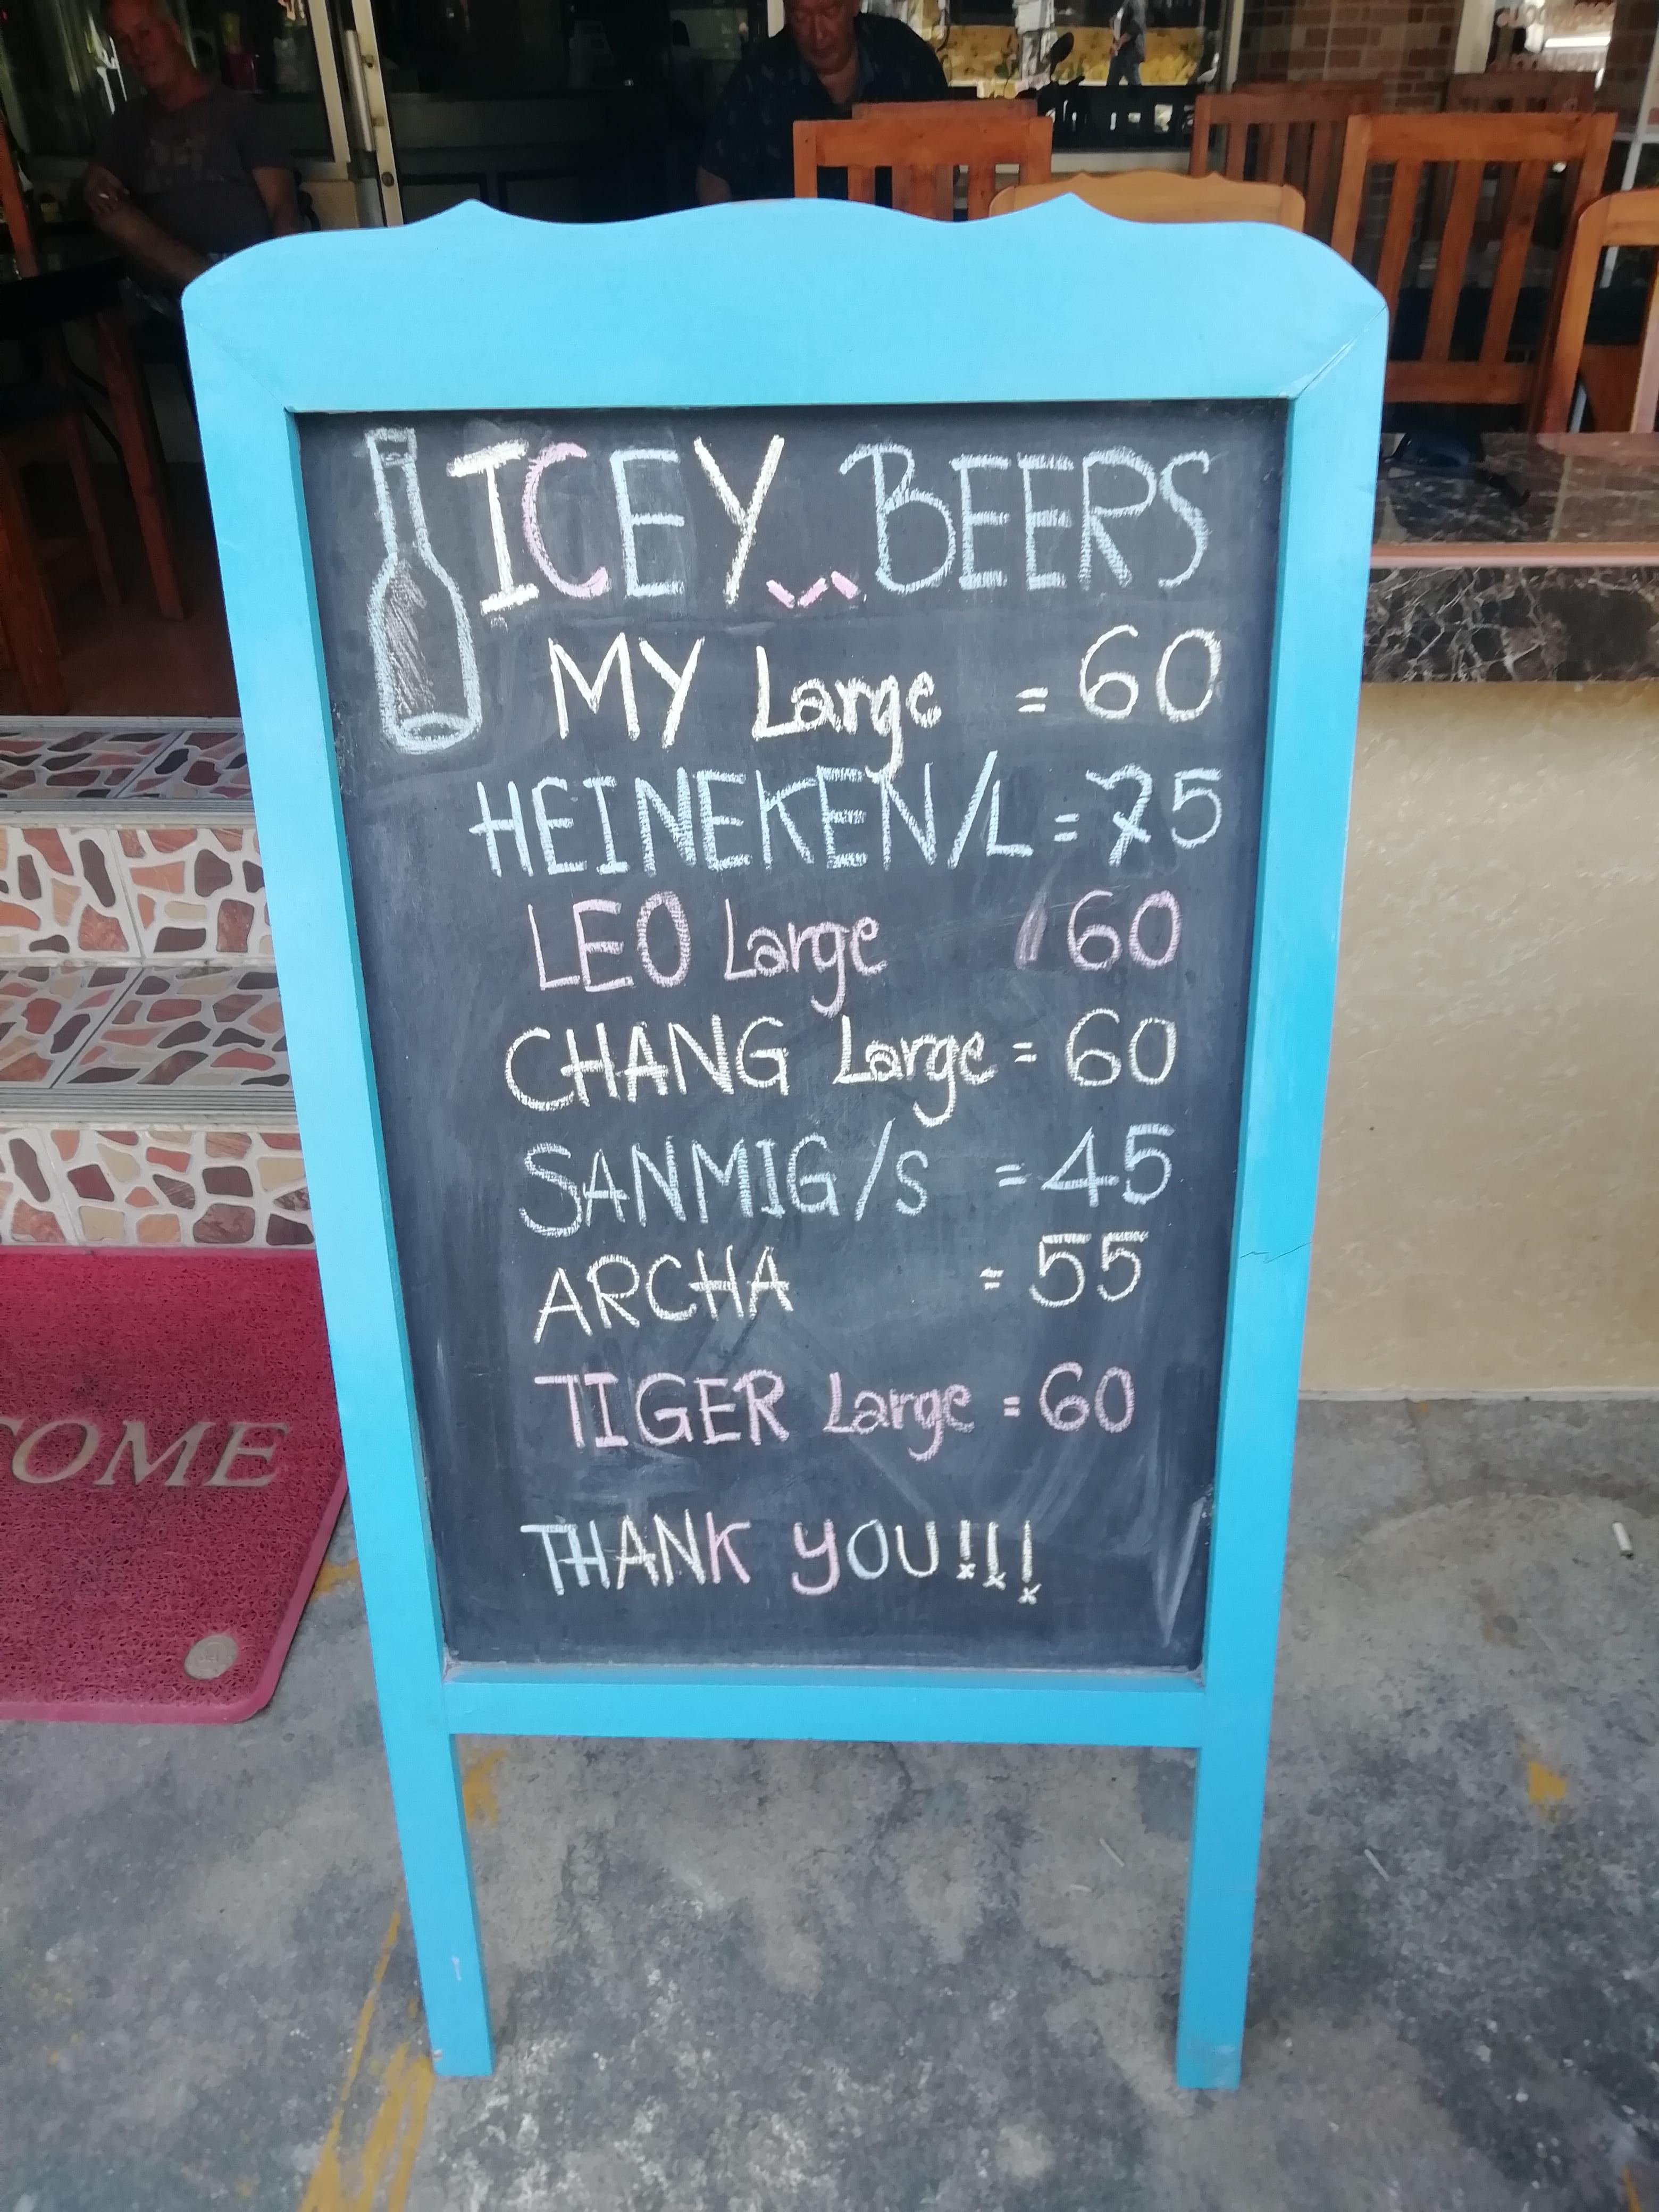 ICEY... BEERS
MY Large = 60
HEINEKEN/L = 75
LEO Large 60
CHANG Large = 60
SANMIG/S = 45
ARCHA = 55
TIGER Large = 60
THANK YOU!!!
COME